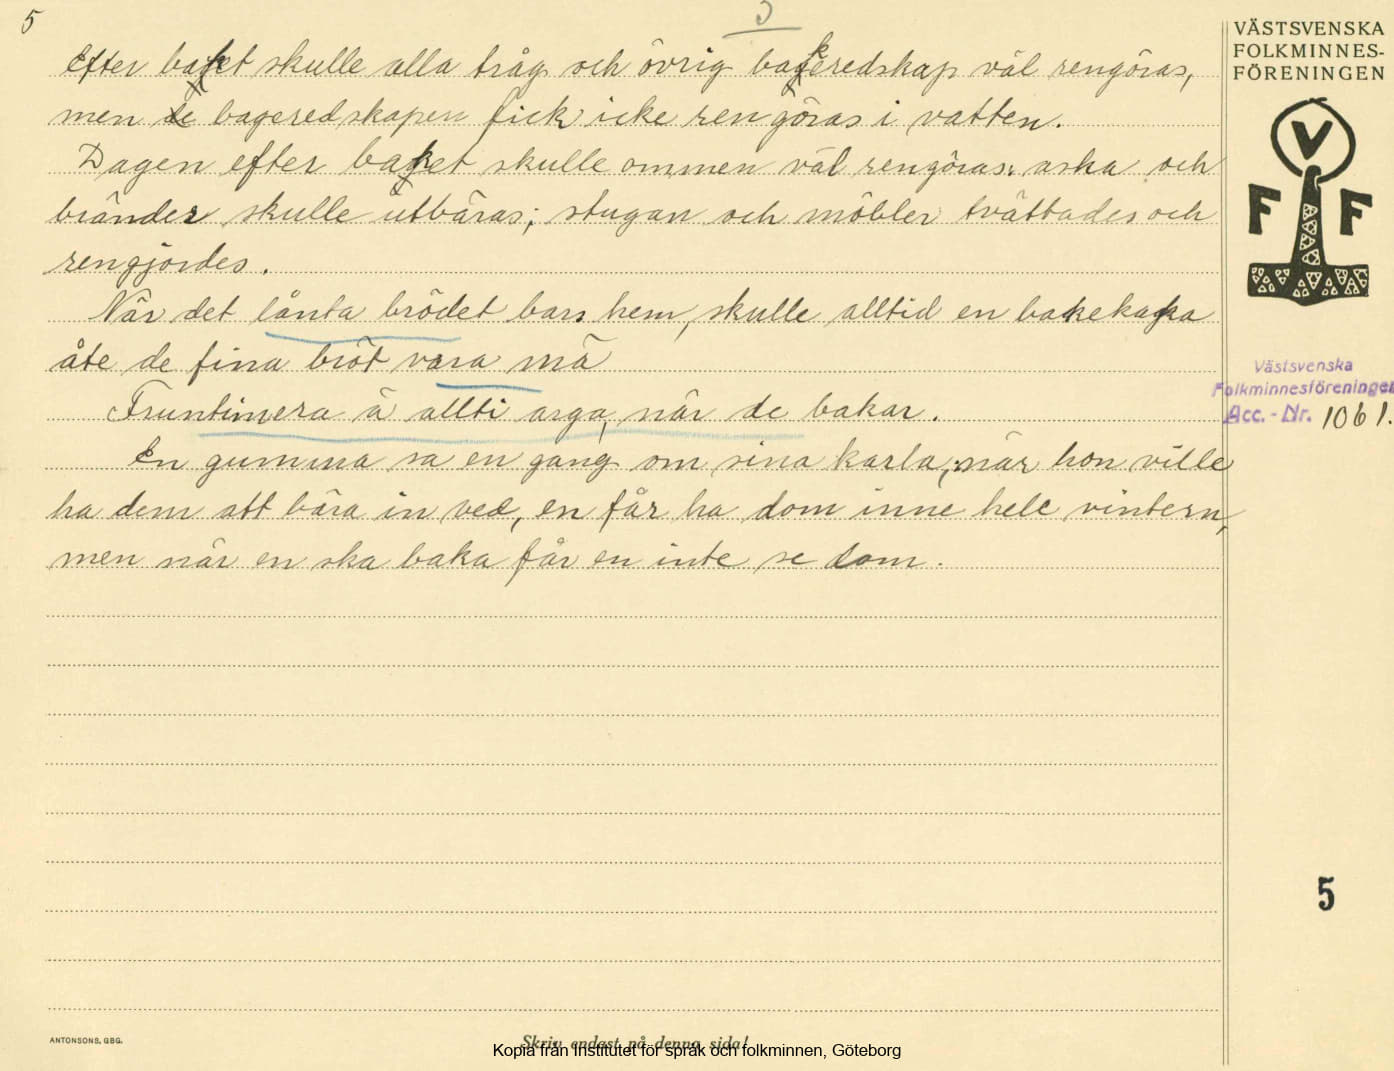 5
5
VÄSTSVENSKA
FOLKMINNES-
FÖRENINGEN
V
F F
Efter baket skulle alla tråg och övrig bakeredskap väl rengöras,
men de bageredskapen fick icke rengöras i vatten.
Dagen efter baket skulle ommen väl rengöras: aska och
bränder skulle utbäras; stugan och möbler tvättades och
rengjordes.
När det lånta brödet bars hem, skulle alltid en bakekaka
åte de fina bröt vara mä
Fruntimera ä allti arga, när de bakar.
En gumma sa en gang om sina karla, när hon ville
ha dem att bära in ved, en får ha dom inne hele vintern,
men när en ska baka får en inte se dom.
Västsvenska
Folkminnesföreningen
Acc. - Nr. 1061.
5
ANTONSONS, GBG.
Skriv endast på denna sida!
Kopia från Institutet för språk och folkminnen, Göteborg